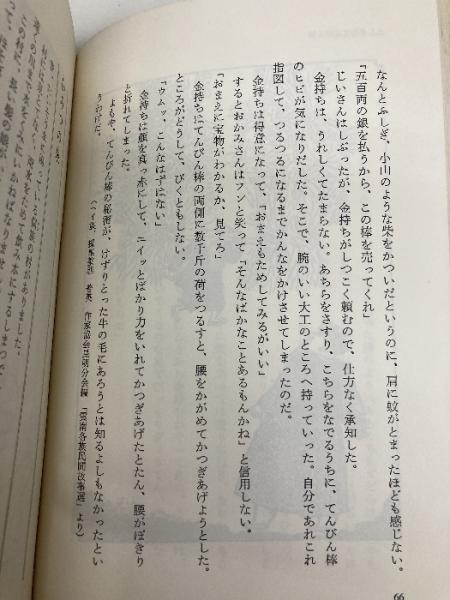 なんとふしぎ、小山のような柴をかついだというのに、肩に蚊がとまったほども感じない。
「五百両の銀を払うから、この棒を売ってくれ」
じいさんはしぶったが、金持ちがしつこく頼むので、仕方なく承知した。
金持ちは、うれしくてたまらない。あちらをさすり、こちらをなでるうちに、てんびん棒
のヒビが気になりだした。そこで、腕のいい大工のところへ持っていった。自分であれこれ
指図して、つるつるになるまでかんなをかけさせてしまったのだ。
金持ちは得意になって、「おまえもためしてみるがいい」
するとおかみさんはフンと笑って「そんなばかなことあるもんかね」と信用しない。
「おまえに宝物がわかるか、見てろ」
金持ちはてんびん棒の両側に数千斤の荷をつるすと、腰をかがめてかつぎあげようとした。
ところがどうして、びくともしない。
「ウムッ、こんなはずはない」
金持ちは顔を真っ赤にして、ニイッとばかり力をいれてかつぎあげたとたん、腰がぽきり
と折れてしまった。
よもや、てんびん棒の秘密が、けずりとった牛の毛にあろうとは知るよしもなかったとい
うわけだ。
66